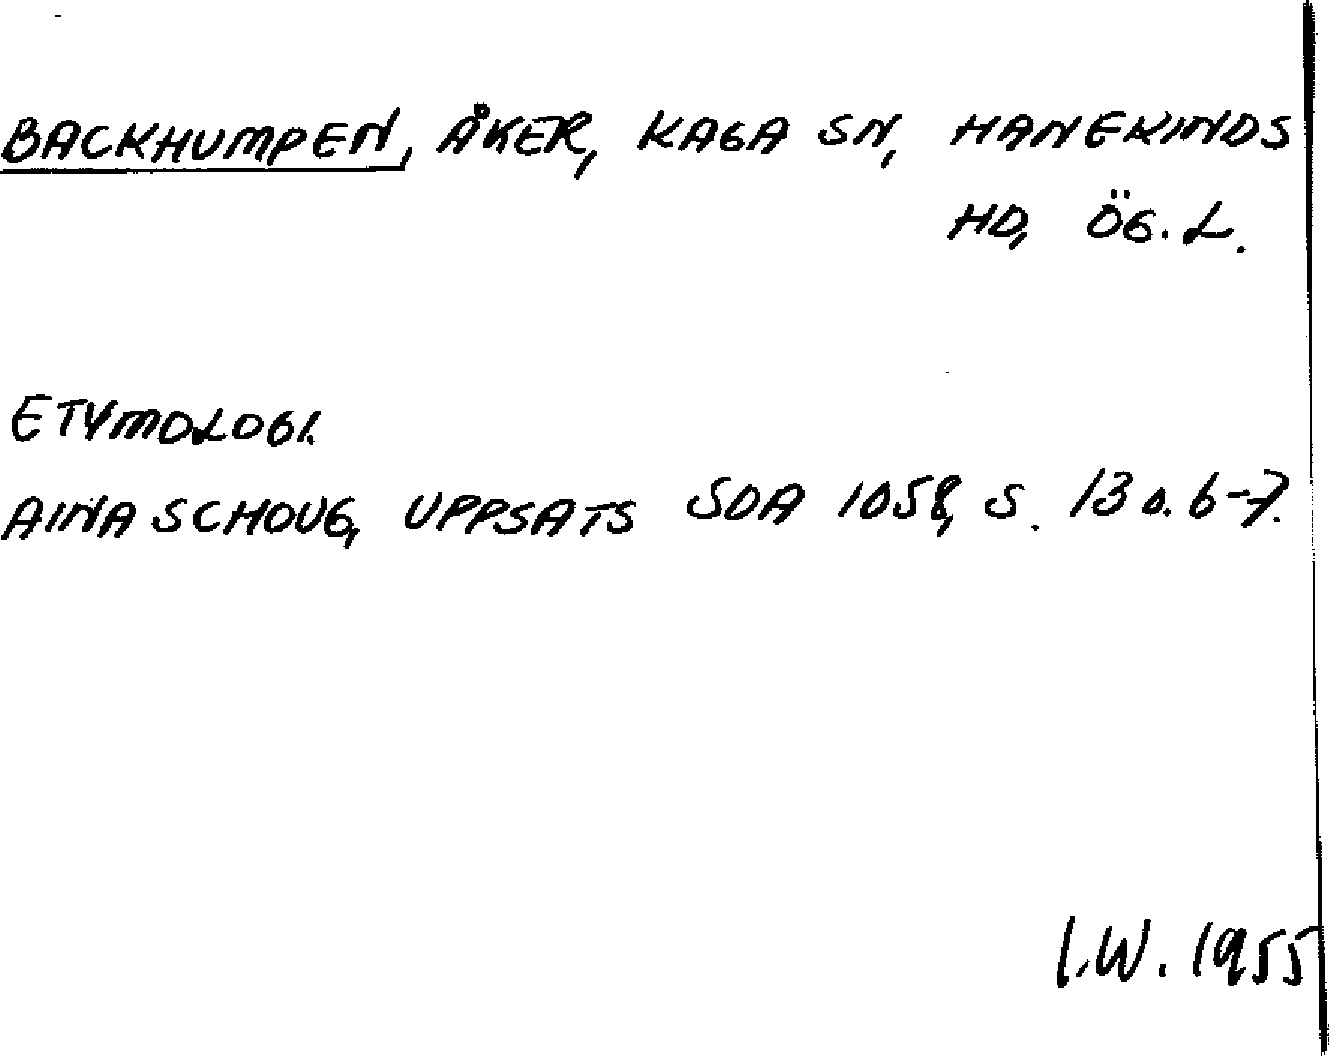 BACKHUMPEN, ÅKER, KAGA SN, HANEKINDS
HD, ÖG. L.
ETYMOLOGI.
AINA SCHOUG, UPPSATS SOA 1058, S. 13 o. 6-7.
I.W. 1955